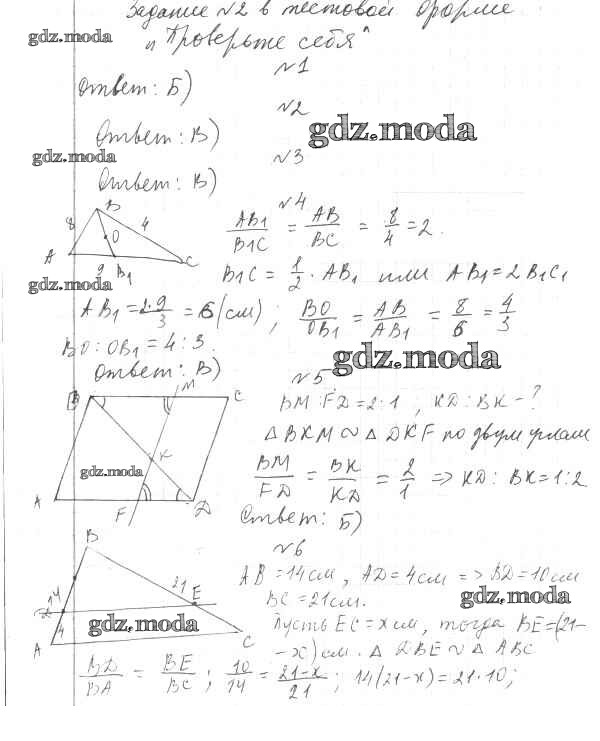 Задание №2 в тестовой форме
gdz.moda
„Проверьте себя"
№1
Ответ: Б)
№2
Ответ: В)
gdz.moda
gdz.moda
№3
Ответ: В)
№4
B
8 4
O
A C
9 B₁
AB₁/B₁C = AB/BC = 8/4 = 2.
gdz.moda
B₁C = 1/2 · AB₁ или AB₁ = 2B₁C₁
AB₁ = 2·9/3 = 6 (см) ; BO/OB₁ = AB/AB₁ = 8/6 = 4/3
BO : OB₁ = 4 : 3.
gdz.moda
Ответ: В)
№5
B M C
K
A F D
gdz.moda
BM : FD = 2 : 1 , KD : BK - ?
△ BKM ∾ △ DKF по двум углам
BM/FD = BK/KD = 2/1 => KD : BK = 1:2
Ответ: Б)
№6
B
14 21 E
4
A C
gdz.moda
AB = 14 см, AD = 4 см => BD = 10 см
BC = 21 см.
gdz.moda
Пусть EC = x см, тогда BE = (21-
- x) см. △ DBE ∾ △ ABC
BD/BA = BE/BC ; 10/14 = 21-x/21 ; 14(21-x) = 21·10;